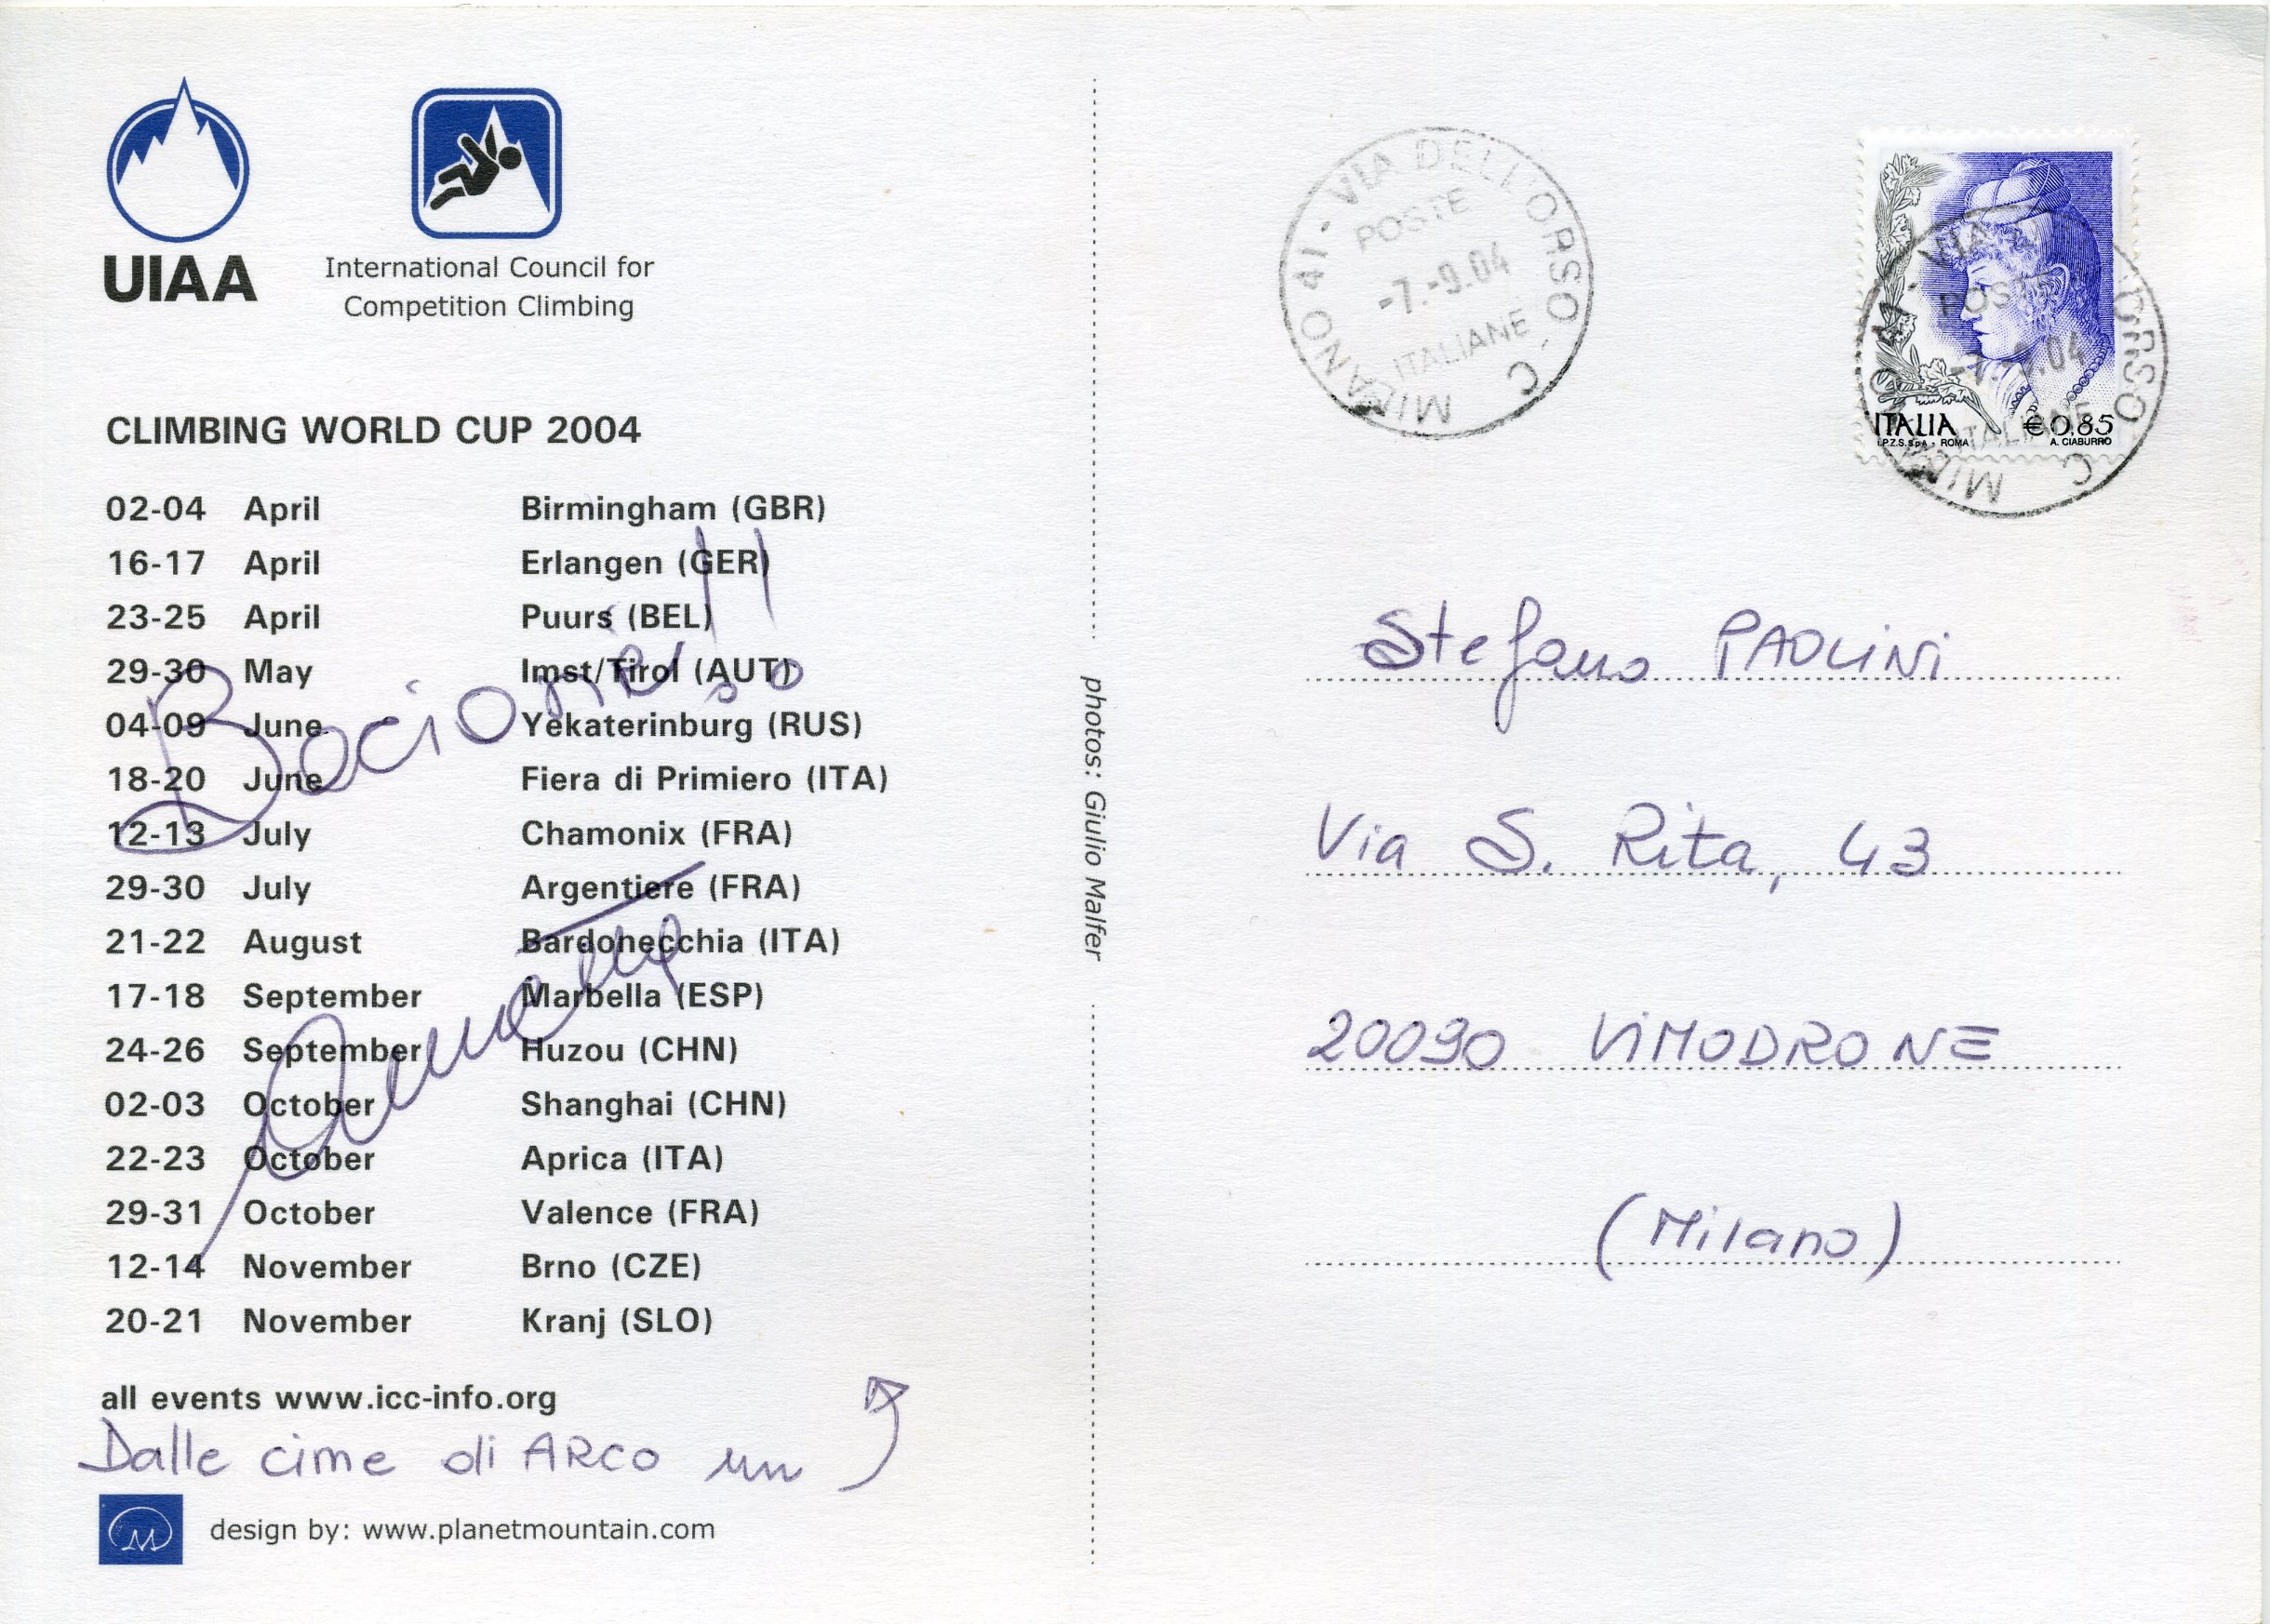 UIAA
International Council for
Competition Climbing
CLIMBING WORLD CUP 2004
02-04 April Birmingham (GBR)
16-17 April Erlangen (GER)
23-25 April Puurs (BEL)
29-30 May Imst/Tirol (AUT)
04-09 June Yekaterinburg (RUS)
18-20 June Fiera di Primiero (ITA)
12-13 July Chamonix (FRA)
29-30 July Argentiere (FRA)
21-22 August Bardonecchia (ITA)
17-18 September Marbella (ESP)
24-26 September Huzou (CHN)
02-03 October Shanghai (CHN)
22-23 October Aprica (ITA)
29-31 October Valence (FRA)
12-14 November Brno (CZE)
20-21 November Kranj (SLO)
all events www.icc-info.org
Dalle cime di ARCO un
Bacione!!
design by: www.planetmountain.com
photos: Giulio Malfer
MILANO 41 - VIA DELL'ORSO - C
POSTE
-7.-9.04
ITALIANE
ITALIA € 0,85
I.P.Z.S. S.p.A. - ROMA A. CIABURRO
POSTE
-7.-9.04
ITALIANE
Stefano PAOLINI
Via S. Rita, 43
20090 VIMODRONE
(Milano)